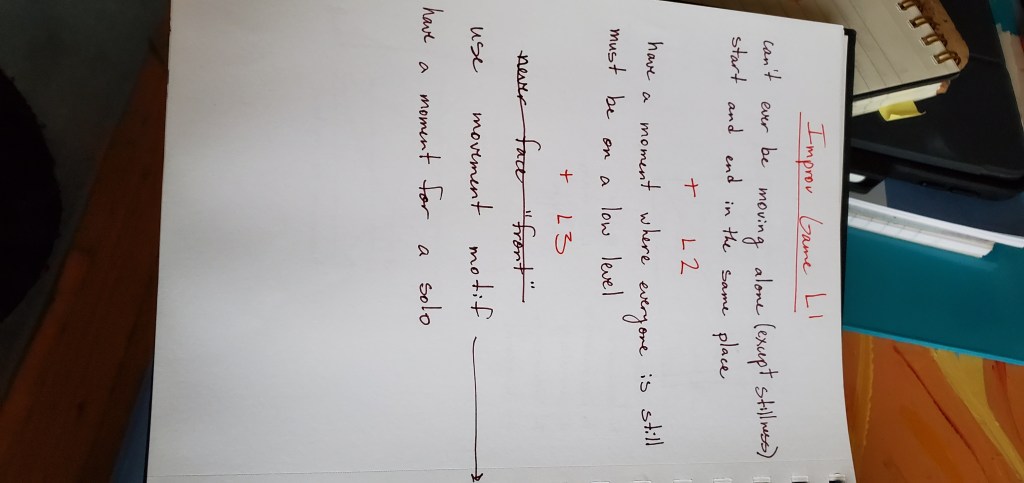 Improv Game L1
can't ever be moving alone (except stillness)
start and end in the same place
+ L2
have a moment where everyone is still
must be on a low level
+ L3
never face "front"
use movement motif →
have a moment for a solo